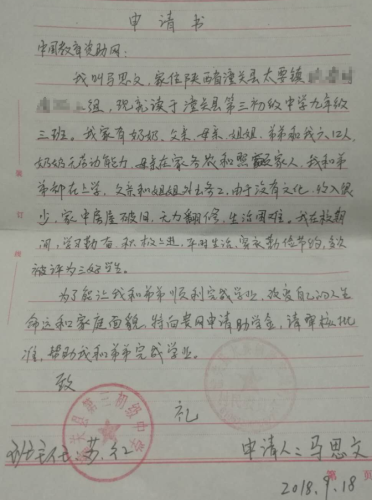 申请书
中国教育资助网：
我叫马思文，家住陕西省潼关县太要镇
组，现就读于潼关县第三初级中学九年级
三班。我家有奶奶、父亲、母亲、姐姐、弟弟和我六口人，
奶奶无劳动能力，母亲在家务农和照顾家人，我和弟
弟都在上学，父亲和姐姐外出务工，由于没有文化，收入很
少，家中房屋破旧，无力翻修，生活困难。我在校期
间，学习勤奋，积极上进，平时生活，勤俭节约，多次
被评为三好学生。
为了能让我和弟弟顺利完成学业，改变自己的人生
命运和家庭面貌，特向贵网申请助学金，请审核批
准，帮助我和弟弟完成学业。
致
礼
潼关县第三初级中学
班主任：苏红
申请人：马思文
2018.9.18